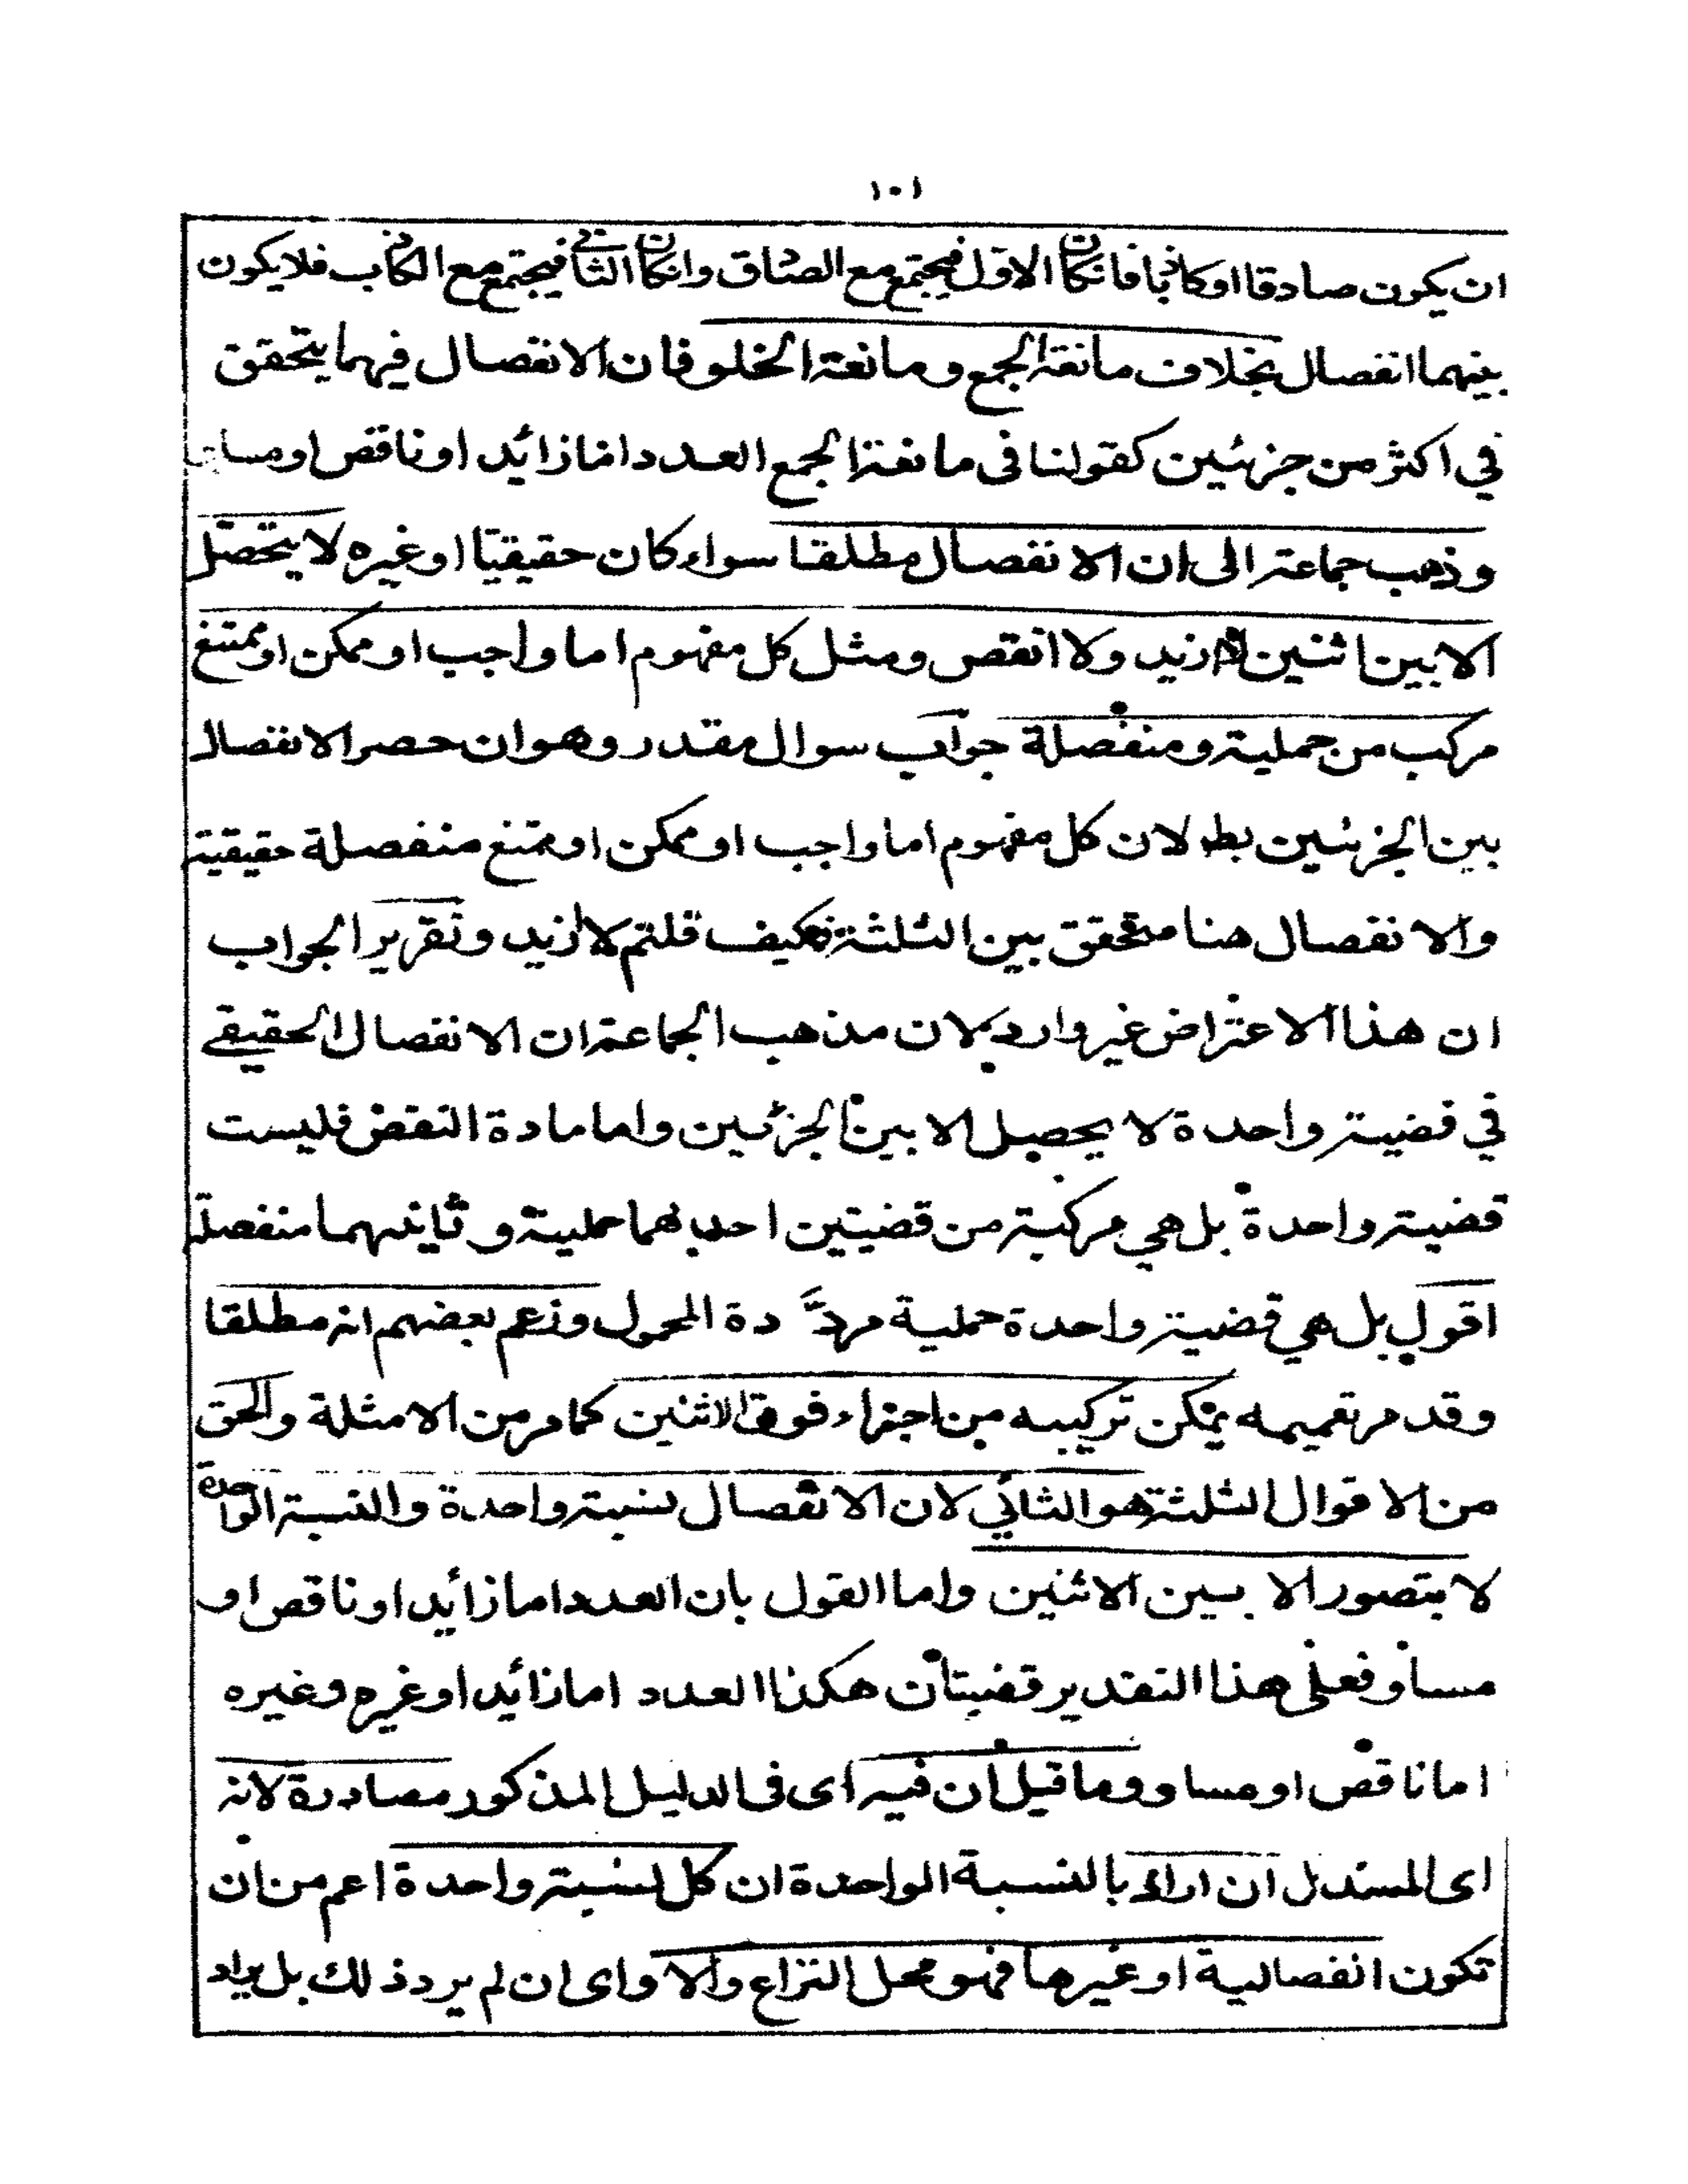 ١٠١
ان يكون صادقا او كاذبا فان كان الاول فيجتمع مع الصادق وان كان الثانى فيجتمع مع الكاذب فلا يكون
بينهما انفصال بخلاف مانعة الجمع ومانعة الخلو فان الانفصال فيهما يتحقق
في اكثر من جزئين كقولنا فى مانعة الجمع العدد اما زائد او ناقص او مساو
وذهب جماعة الى ان الانفصال مطلقا سواء كان حقيقيا او غيره لا يتحصل
الا بين اثنين لا ازيد ولا انقص ومثل كل مفهوم اما واجب او ممكن او ممتنع
مركب من حملية ومنفصلة جواب سوال مقدر وهو ان حصر الانفصال
بين الجزئين بط لان كل مفهوم اما واجب او ممكن او ممتنع منفصلة حقيقية
والانفصال هنا متحقق بين الثلثة فكيف قلتم لا ازيد وتقرير الجواب
ان هذا الاعتراض غير وارد لان مذهب الجماعة ان الانفصال الحقيقے
في قضية واحدة لا يحصل الا بين الجزئين واما مادة النقض فليست
قضية واحدة بل هي مركبة من قضيتين احديهما حملية وثانيهما منفصلة
اقول بل هي قضية واحدة حملية مردَّدة المحمول وزعم بعضهم انه مطلقا
وقد مر تعميمه يمكن تركيبه من اجزاء فوق الاثنين كما مر من الامثلة والحق
من الاقوال الثلثة هو الثاني لان الانفصال نسبة واحدة والنسبة الواحدة
لا يتصور الا بين الاثنين واما القول بان العدد اما زائد او ناقص او
مساو فعلى هذا التقدير قضيتان هكذا العدد اما زائد او غيره وغيره
اما ناقص او مساو وما قيل ان فيه اى فى الدليل المذكور مصادرة لانه
اى المستدل ان اراد بالنسبة الواحدة ان كل نسبة واحدة اعم من ان
تكون انفصالية او غيرها فهو محل النزاع والا واى ان لم يرد ذلك بل يراد